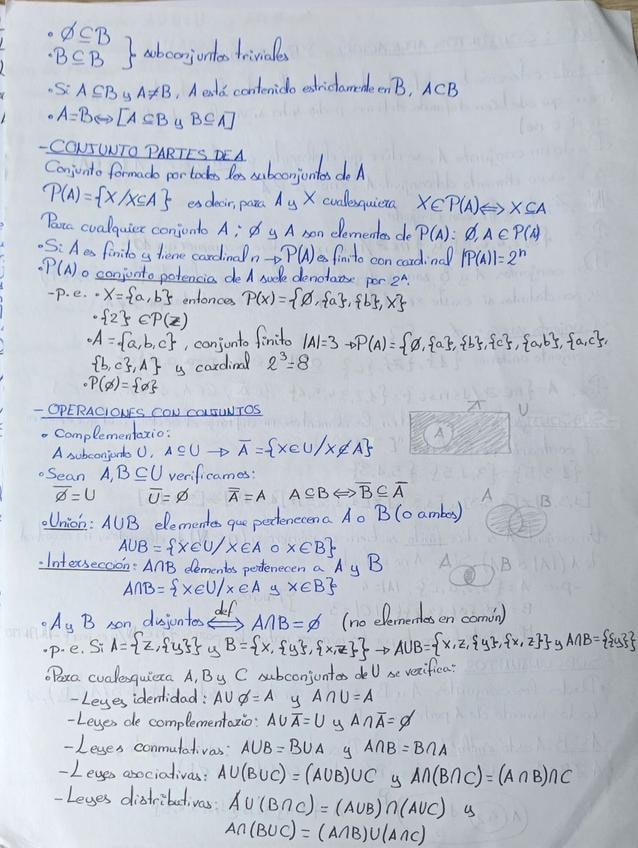 • Ø⊆B
• B⊆B } subconjuntos triviales
• Si A⊆B y A≠B, A está contenido estrictamente en B, A⊂B
• A=B⟺[A⊆B y B⊆A]
- CONJUNTO PARTES DE A
Conjunto formado por todos los subconjuntos de A
P(A)={X/X⊆A} es decir, para A y X cualesquiera X∈P(A)⟺X⊆A
Para cualquier conjunto A; Ø y A son elementos de P(A): Ø, A∈P(A)
• Si A es finito y tiene cardinal n → P(A) es finito con cardinal |P(A)|=2ⁿ
• P(A) o conjunto potencia de A suele denotarse por 2ᴬ.
- p.e. • X={a,b} entonces P(X)={Ø,{a},{b},X}
• {2}∈P(ℤ)
• A={a,b,c}, conjunto finito |A|=3 → P(A)={Ø,{a},{b},{c},{a,b},{a,c},
{b,c},A} y cardinal 2³=8
• P(Ø)={Ø}
- OPERACIONES CON CONJUNTOS
• Complementario:
A subconjunto U, A⊆U → A̅={X∈U/X∉A}
A̅ U
A
• Sean A,B⊆U verificamos:
Ø̅=U U̅=Ø A̅=A A⊆B⟺B̅⊆A̅
• Unión: A∪B elementos que pertenecen a A o B (o ambos)
A∪B={X∈U/X∈A o X∈B}
A B
• Intersección: A∩B elementos pertenecen a A y B
A∩B={X∈U/X∈A y X∈B}
A B
• A y B son disjuntos ⟺def A∩B=Ø (no elementos en común)
• p.e. Si A={z,{y}} y B={x,{y},{x,z}} → A∪B={x,z,{y},{x,z}} y A∩B={{y}}
• Para cualesquiera A, B y C subconjuntos de U se verifica:
- Leyes identidad: A∪Ø=A y A∩U=A
- Leyes de complementario: A∪A̅=U y A∩A̅=Ø
- Leyes conmutativas: A∪B=B∪A y A∩B=B∩A
- Leyes asociativas: A∪(B∪C)=(A∪B)∪C y A∩(B∩C)=(A∩B)∩C
- Leyes distributivas: A∪(B∩C)=(A∪B)∩(A∪C) y
A∩(B∪C)=(A∩B)∪(A∩C)